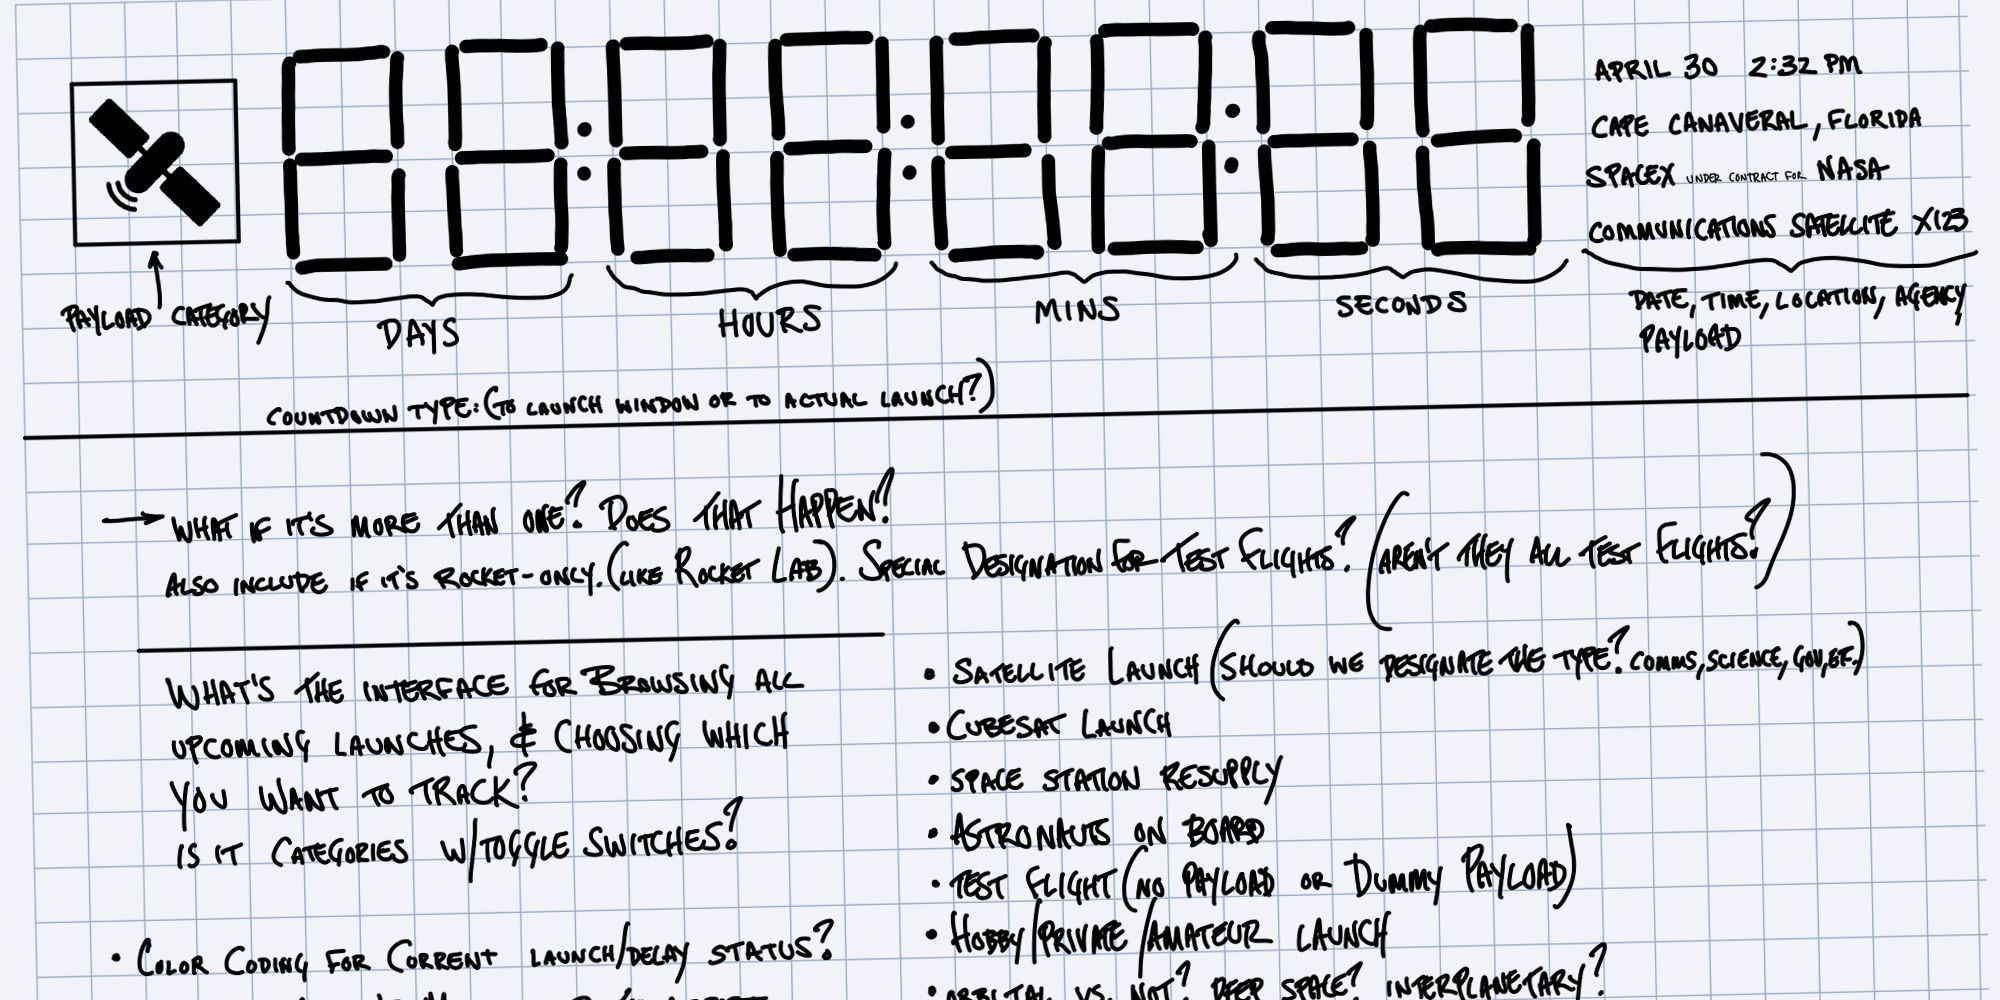 88:88:88:88
APRIL 30 2:32 PM
CAPE CANAVERAL, FLORIDA
SPACEX UNDER CONTRACT FOR NASA
COMMUNICATIONS SATELLITE X123
PAYLOAD CATEGORY
DAYS
HOURS
MINS
SECONDS
DATE, TIME, LOCATION, AGENCY,
PAYLOAD
COUNTDOWN TYPE: (TO LAUNCH WINDOW OR TO ACTUAL LAUNCH?)
→ WHAT IF IT'S MORE THAN ONE? DOES THAT HAPPEN?
ALSO INCLUDE IF IT'S ROCKET-ONLY. (LIKE ROCKET LAB). SPECIAL DESIGNATION FOR TEST FLIGHTS? (AREN'T THEY ALL TEST FLIGHTS?)
WHAT'S THE INTERFACE FOR BROWSING ALL
UPCOMING LAUNCHES, & CHOOSING WHICH
YOU WANT TO TRACK?
IS IT CATEGORIES W/TOGGLE SWITCHES?
• COLOR CODING FOR CORRENT LAUNCH/DELAY STATUS?
• SATELLITE LAUNCH (SHOULD WE DESIGNATE THE TYPE? COMMS, SCIENCE, GOV, ET.)
• CUBESAT LAUNCH
• SPACE STATION RESUPPLY
• ASTRONAUTS ON BOARD
• TEST FLIGHT (NO PAYLOAD OR DUMMY PAYLOAD)
• HOBBY/PRIVATE/AMATEUR LAUNCH
• ORBITAL VS. NOT? DEEP SPACE? INTERPLANETARY?